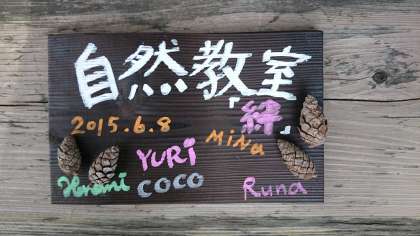 自然教室
「絆」
2015.6.8
MiNa
YURi
Honami
COCO
Runa